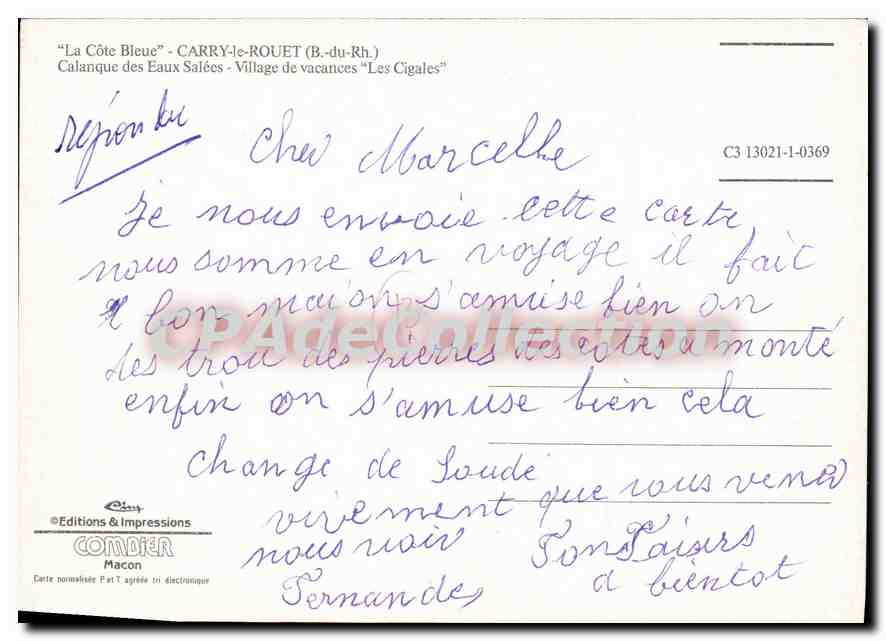 "La Côte Bleue" - CARRY-le-ROUET (B.-du-Rh.)
Calanque des Eaux Salées - Village de vacances "Les Cigales"
répondu
C3 13021-1-0369
Cher Marcelle
Je nous envoie cette carte
nous somme en voyage il fait
bon mais on s'amuse bien on
des trou des pierres des cotes a monté
enfin on s'amuse bien cela
change de Soude
vivement que vous vener
nous voir
Bons Baisers
a bientot
Fernandes
CPAdeCollection
Cim
©Editions & Impressions
COMBIER
Macon
Carte normalisée P et T agréée tri électronique